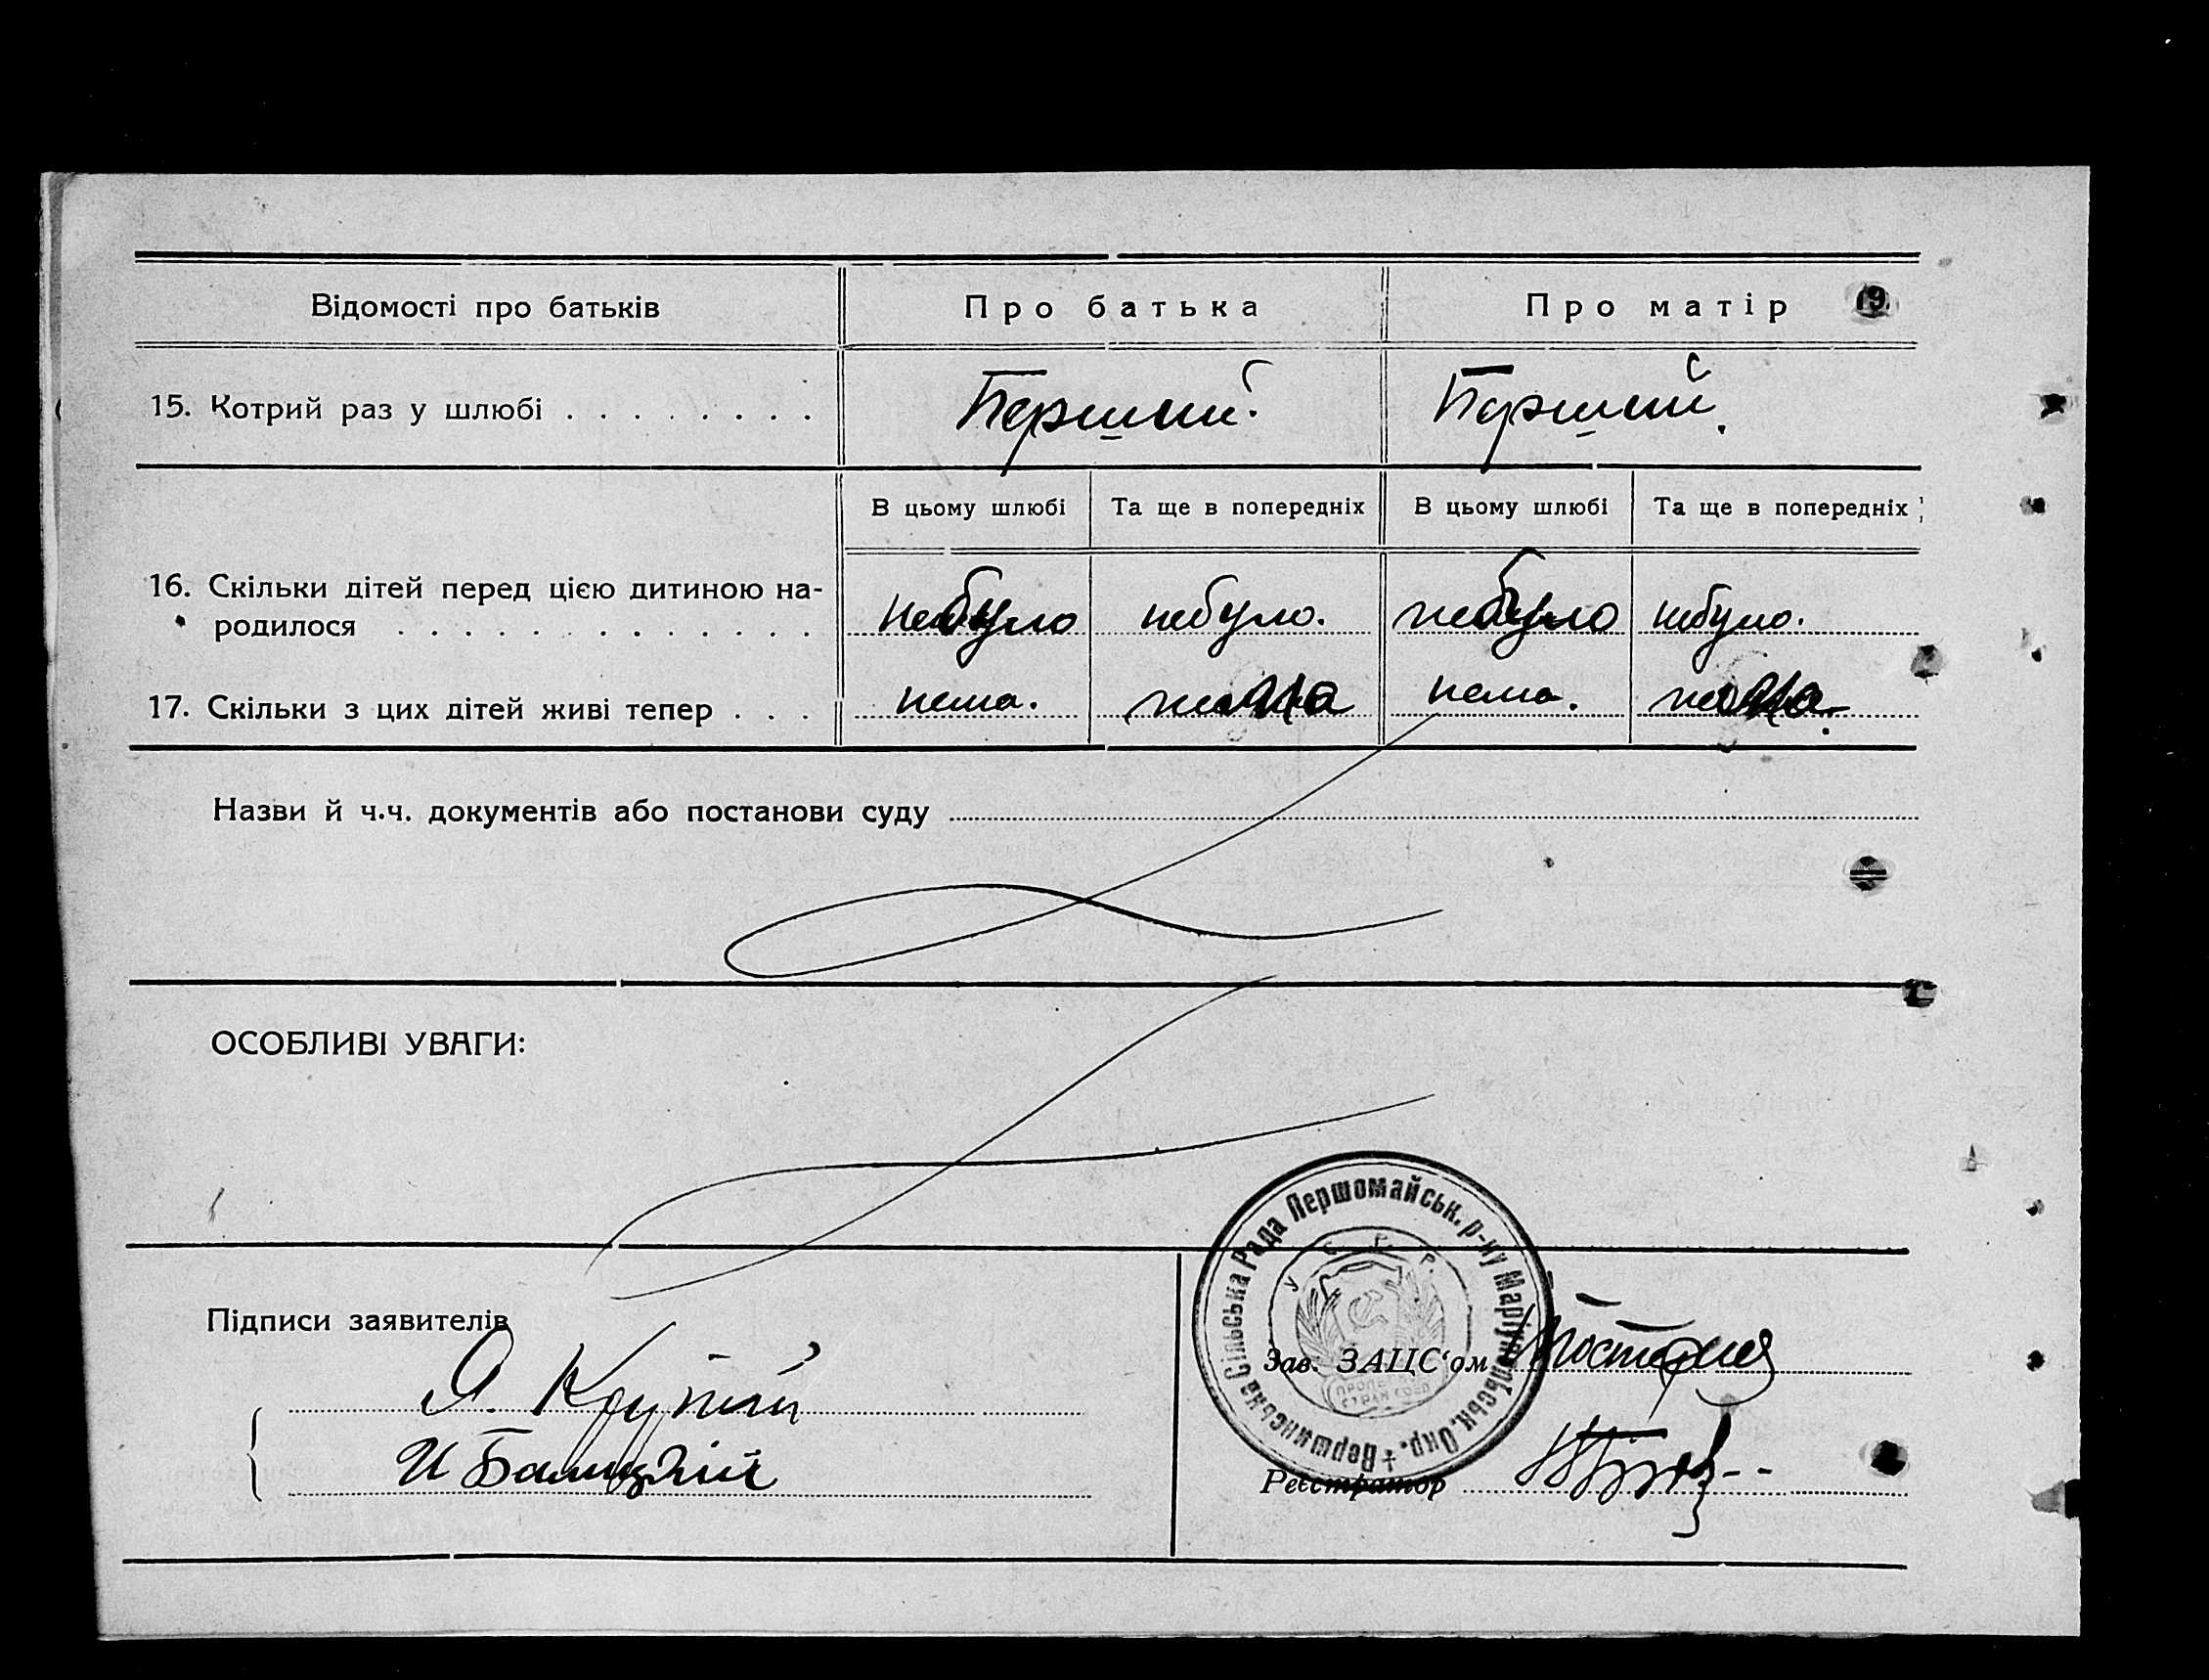 Відомості про батьків
Про батька
Про матір
15. Котрий раз у шлюбі
Перший.
Перший.
В цьому шлюбі
Та ще в попередніх
В цьому шлюбі
Та ще в попередніх
16. Скільки дітей перед цією дитиною на-
родилося
небуло
небуло.
небуло
небуло.
17. Скільки з цих дітей живі тепер
нема.
нема
нема.
нема.
Назви й ч.ч. документів або постанови суду
ОСОБЛИВІ УВАГИ:
Вершинська Сільська Рада Першомайськ. р-ну Маріупільськ. Окр.
У С Р Р.
Підписи заявителів
Я. Крупій
И Балицкій
Зав. ЗАЦС‘ом
Реєстратор